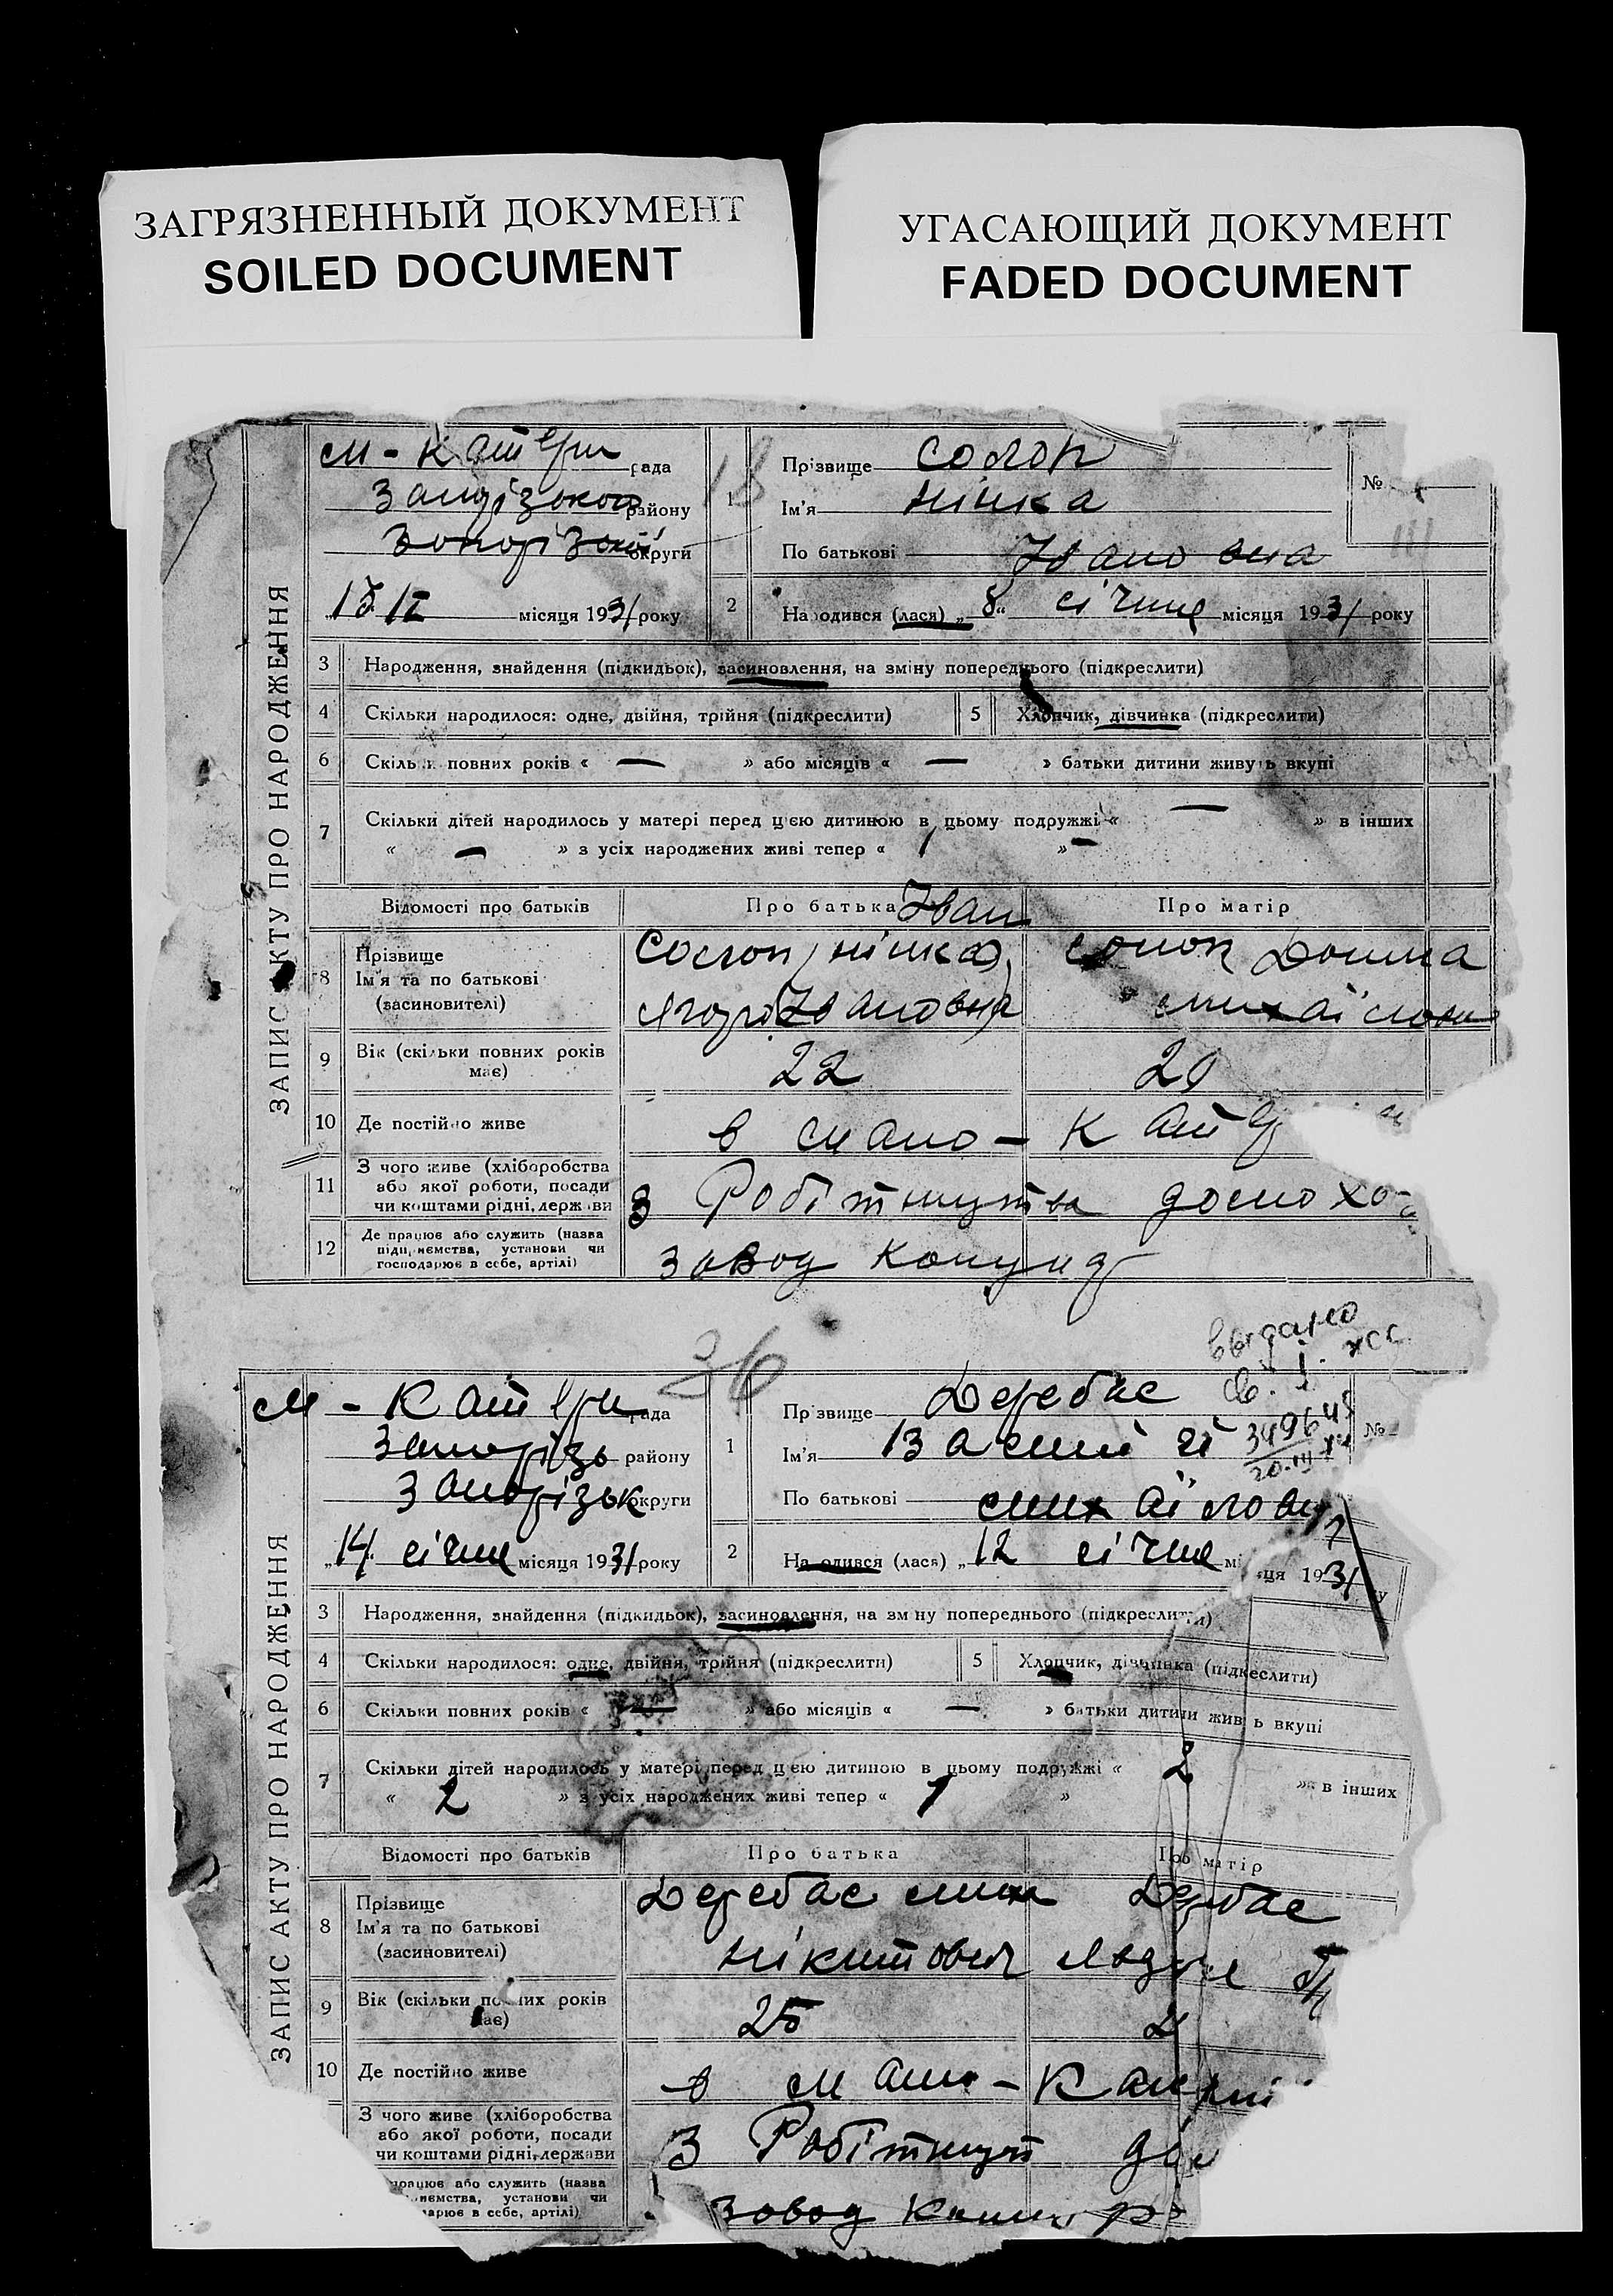 ЗАГРЯЗНЕННЫЙ ДОКУМЕНТ
SOILED DOCUMENT
УГАСАЮЩИЙ ДОКУМЕНТ
FADED DOCUMENT
ЗАПИС АКТУ ПРО НАРОДЖЕННЯ
М-Катери рада
району
округи
місяця 1931 року
18
1 Прізвище Солоп
Ім'я Нінка
По батькові Івановна
№
2 Народився (лася) „8“ січня місяця 1931 року
3 Народження, знайдення (підкидьок), засиновлення, на зміну попереднього (підкреслити)
4 Скільки народилося: одне, двійня, трійня (підкреслити)
5 Хлопчик, дівчинка (підкреслити)
6 Скільки повних років « — » або місяців « — » батьки дитини живуть вкупі
7 Скільки дітей народилось у матері перед цією дитиною в цьому подружжі « — » в інших
« — » з усіх народжених живі тепер « 1 » —
Відомості про батьків
Про батька Іван
Про матір
8 Прізвище
Ім'я та по батькові
(засиновителі)
Солоп (Нінка)
Івановна
Солоп Домна
9 Вік (скільки повних років має)
22
20
10 Де постійно живе
в Мало-Кате
11 З чого живе (хліборобства
або якої роботи, посади
чи коштами рідні, держави
З Робітництва
12 Де працює або служить (назва
підприємства, установи чи
господарює в себе, артілі)
завод Комунар
видано
36
ЗАПИС АКТУ ПРО НАРОДЖЕННЯ
М-Катери рада
Запорізь району
Запорізьк округи
„14 січня місяця 1931 року
1 Прізвище Деребас
Ім'я Василій
По батькові Михайлови
349648
20.III
№
2 Народився (лася) „12 січня місяця 1931
3 Народження, знайдення (підкидьок), засиновлення, на зміну попереднього (підкреслити)
4 Скільки народилося: одне, двійня, трійня (підкреслити)
5 Хлопчик, дівчинка (підкреслити)
6 Скільки повних років « » або місяців « — » батьки дитини живуть вкупі
7 Скільки дітей народилось у матері перед цією дитиною в цьому подружжі « 2 » в інших
« 2 » з усіх народжених живі тепер « 1 »
Відомості про батьків
Про батька
Про матір
8 Прізвище
Ім'я та по батькові
(засиновителі)
Деребас Мих
Нікитович
Деребас
9 Вік (скільки повних років має)
25
2
10 Де постійно живе
в Мало-Кате
З чого живе (хліборобства
або якої роботи, посади
чи коштами рідні, держави
З Робітницт
працює або служить (назва
установи чи
в себе, артілі)
завод Комунар